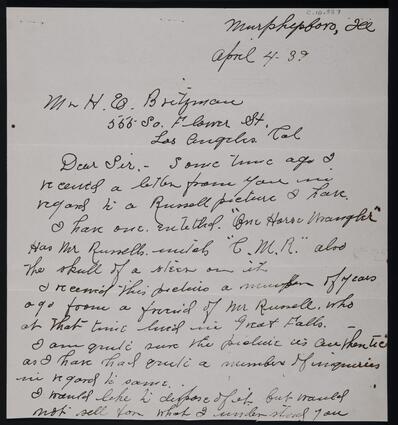 Murphysboro, Ill
April 4-39
Mr H. E. Britzman
555-So. Flower St.
Los Angeles Cal
Dear Sir,- Some time ago I
received a letter from you in
regard to a Russell picture I have.
I have one entitled. "One Horse Wrangler"
Has Mr Russells initials "C.M.R." also
the skull of a steer on it
I received this picture a number of years
ago from a friend of Mr Russell, who
at that time lived in Great Falls.
I am quite sure the picture is authentic
as I have had quite a number of inquiries
in regard to same.
I would like to dispose of it but would
not sell for what I understand you